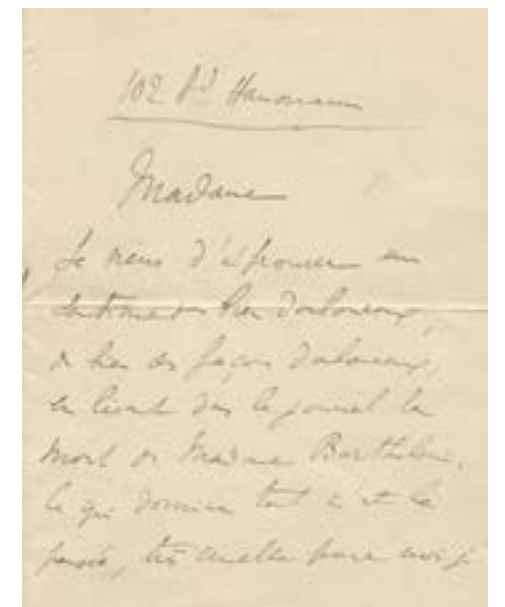 102 Bd Haussmann
Madame
Je viens d'éprouver un
sentiment bien douloureux,
de bien des façons douloureux,
en lisant dans le journal la
mort de Madame Bartholoni.
Ce qui domine tout c'est la
pensée, très cruelle pour moi